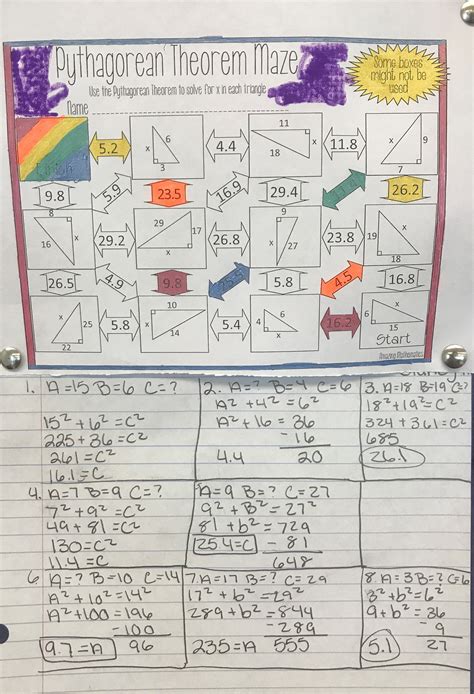 Pythagorean Theorem Maze
Use the Pythagorean Theorem to solve for x in each triangle
Some boxes
might not be
used
Name
5.2
x 6
3
4.4
11
18 x
11.8
x 9
7
9.8
5.9
23.5
16.9
29.4
26.2
8
16 x
29.2
29 17
x
26.8
9
x 27
23.8
19 x
18
26.5
4.9
9.8
5.8
4.5
16.8
x 25
22
5.8
10
x 14
5.4
4 6
x
16.2
6 x
15
Start
Amazing Mathematics
1. A=15 B=6 C=?
15²+6²=C²
225+36=C²
261=C²
16.1=C
2. A=? B=4 C=6
A²+4²=6²
A²+16=36
-16
4.4 20
3. A=18 B=19 C=?
18²+19²=C²
324+361=C²
685
26.1
4. A=7 B=9 C=?
7²+9²=C²
49+81=C²
130=C²
11.4=C
A=9 B=? C=27
9²+B²=27²
81+b²=729
25.4=C -81
648
6 A=? B=10 C=14
A²+10²=14²
A²+100=196
-100
9.7=A 96
7. A=17 B=? C=29
17²+b²=29²
289+b²=844
-289
235=A 555
8. A=3 B=? C=6
3²+b²=6²
9+b²=36
-9
5.1 27